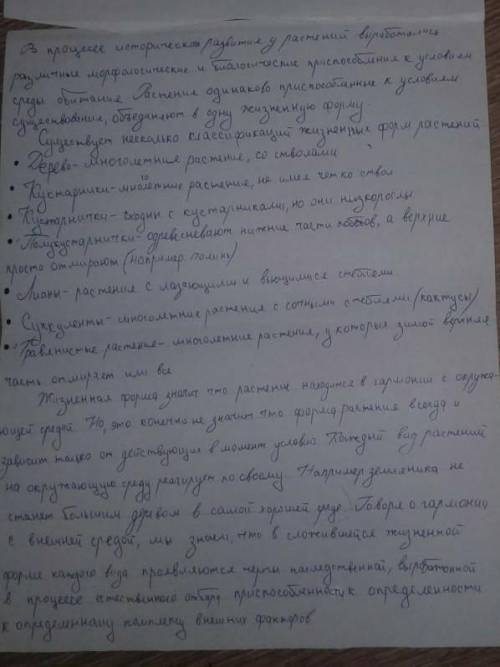 В процессе исторического развития у растений выработались
различные морфологические и биологические приспособления к условиям
среды обитания. Растение одинаково приспособленные к условиям
существования, объединяют в одну жизненную форму
Существует несколько классификаций жизненных форм растений
• Дерево- многолетние растение, со стволами
• Кустарники- многолетние растение, не имея четко ствол
• Кустарнички- сходны с кустарниками, но они низкорослы
• Полукустарнички- одревесневают нижние части побегов, а верхние
просто отмирают (например: полынь)
• Лианы- растения с лазающими и вьющимися стеблями
• Суккуленты- многолетние растения с сочными стеблями (кактусы)
• Травянистые растение- многолетние растения, у которых зимой верхняя
часть отмирает или вся
Жизненная форма значит что растение находится в гармонии с окружа-
ющей средой. Но, это конечно не значит что форма растения всегда и
зависит только от действующих в момент условий. Каждый вид растений
на окружающую среду реагирует по своему. Например земляника не
станет большим деревом в самой хорошей среде. Говоря о гармонии
с внешней средой, мы знаем, что в сложившейся жизненной
форме каждого вида проявляются черты наследственной, выработанной
в процессе естественного отбора приспособленности к определенности
к определенному комплексу внешних факторов